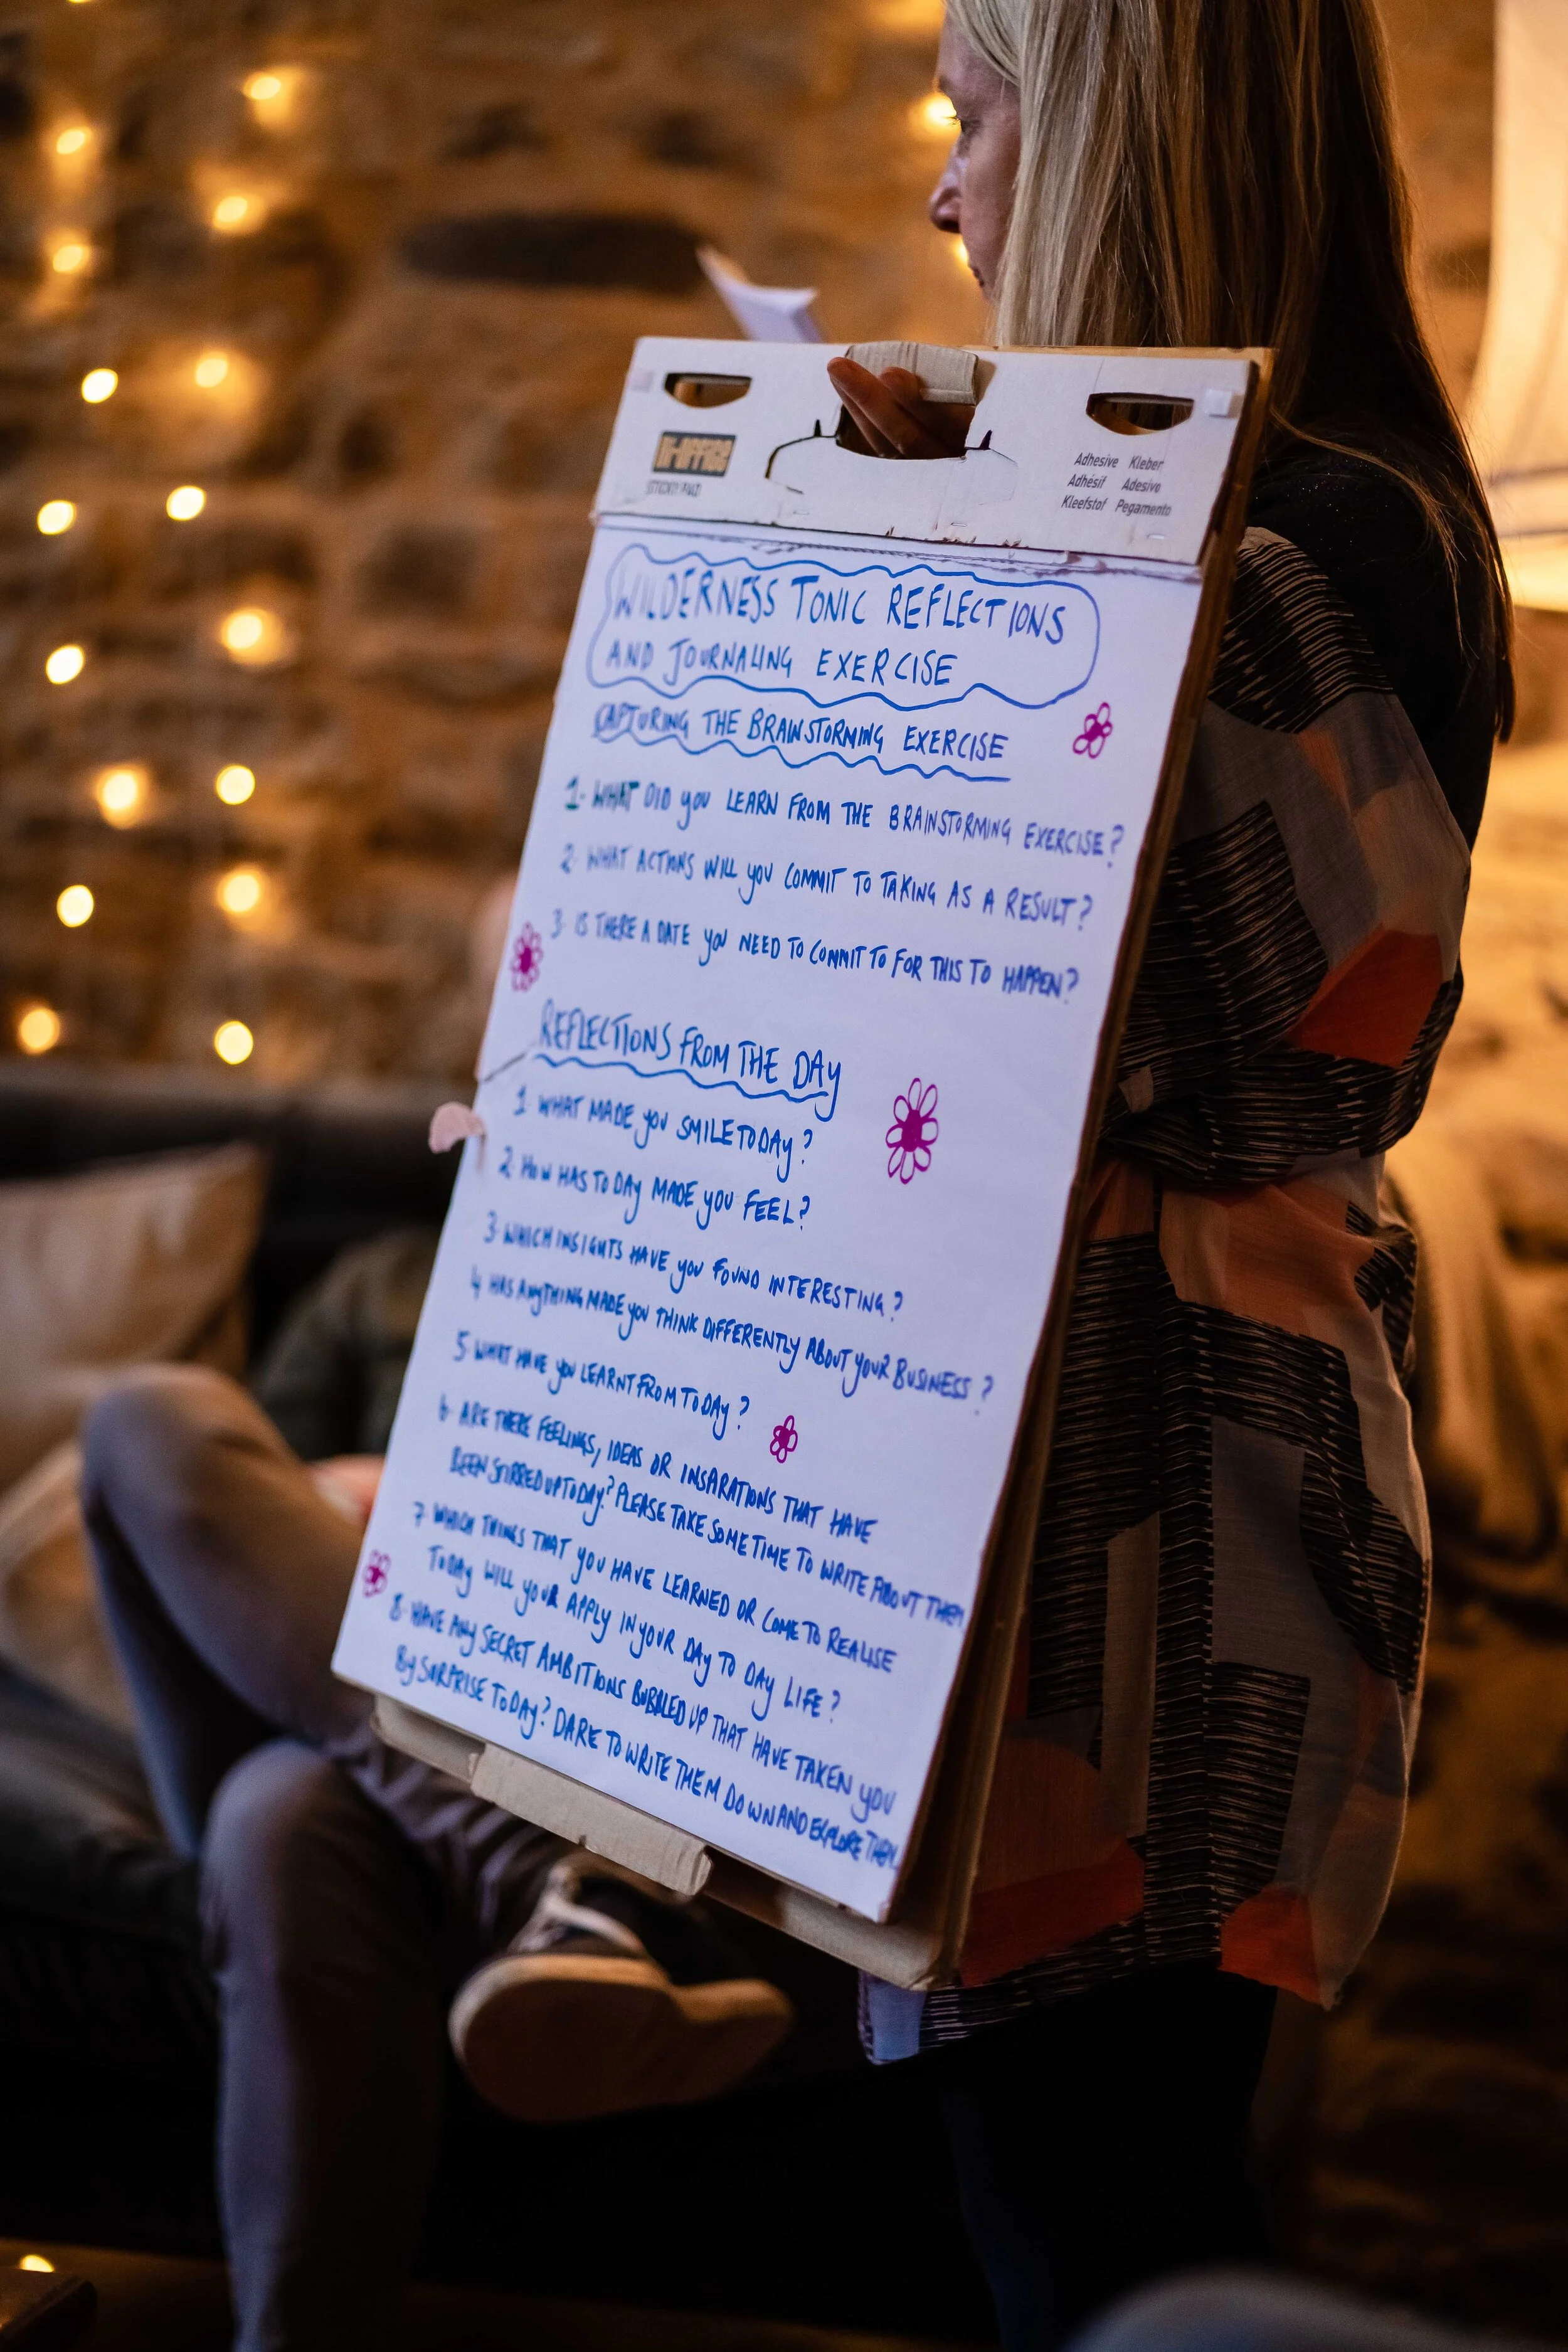 BI-OFFICE
STICKY PAD
Adhesive Kleber
Adhésif Adesivo
Kleefstof Pegamento
WILDERNESS TONIC REFLECTIONS
AND JOURNALING EXERCISE
CAPTURING THE BRAINSTORMING EXERCISE
1- WHAT DID YOU LEARN FROM THE BRAINSTORMING EXERCISE?
2- WHAT ACTIONS WILL YOU COMMIT TO TAKING AS A RESULT?
3- IS THERE A DATE YOU NEED TO COMMIT TO FOR THIS TO HAPPEN?
REFLECTIONS FROM THE DAY
1- WHAT MADE YOU SMILE TODAY?
2- HOW HAS TODAY MADE YOU FEEL?
3- WHICH INSIGHTS HAVE YOU FOUND INTERESTING?
4 HAS ANYTHING MADE YOU THINK DIFFERENTLY ABOUT YOUR BUSINESS?
5- WHAT HAVE YOU LEARNT FROM TODAY?
6- ARE THERE FEELINGS, IDEAS OR INSPARATIONS THAT HAVE
BEEN STIRRED UP TODAY? PLEASE TAKE SOME TIME TO WRITE ABOUT THEM
7- WHICH THINGS THAT YOU HAVE LEARNED OR COME TO REALISE
TODAY WILL YOUR APPLY IN YOUR DAY TO DAY LIFE?
8- HAVE ANY SECRET AMBITIONS BUBBLED UP THAT HAVE TAKEN YOU
BY SURPRISE TODAY? DARE TO WRITE THEM DOWN AND EXPLORE THEM.